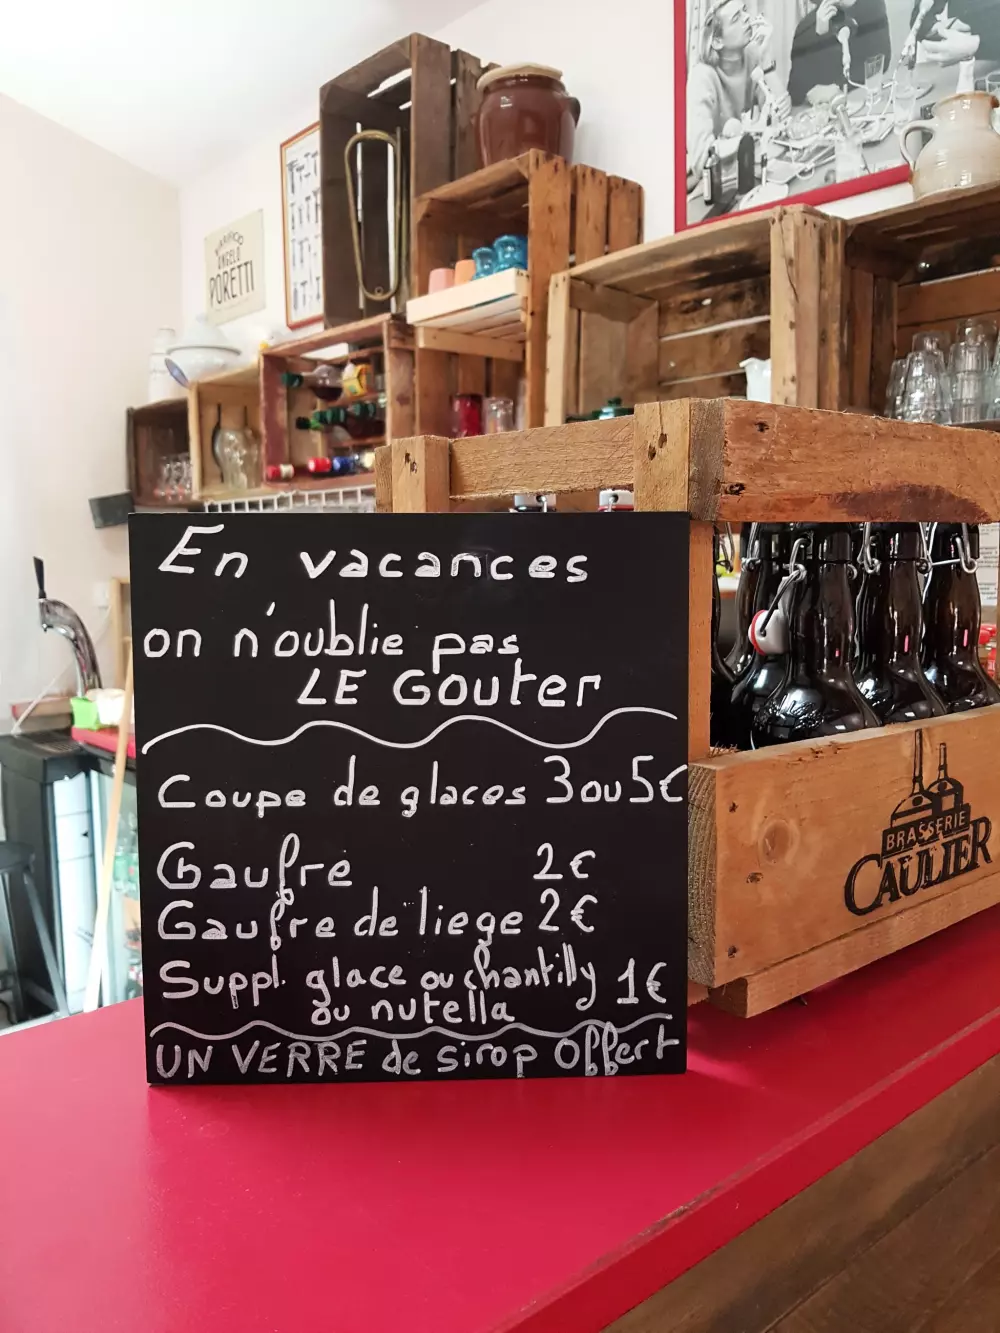 BIRRIFICIO
ANGELO
PORETTI
En vacances
on n'oublie pas
LE Gouter
Coupe de glaces 3 ou 5€
Gaufre 2€
Gaufre de liege 2€
Suppl. glace ou chantilly 1€
ou nutella
UN VERRE de sirop Offert
BRASSERIE
CAULIER